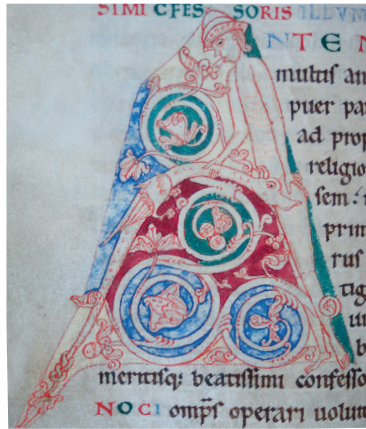 SIMI CFES SORIS ILLVM
A NTE N
multis an
puer par
ad prop
religio
sem: n
prim
rus
tig
un
b
meritisq; beatissimi confesso
NOCI omps operari uolun